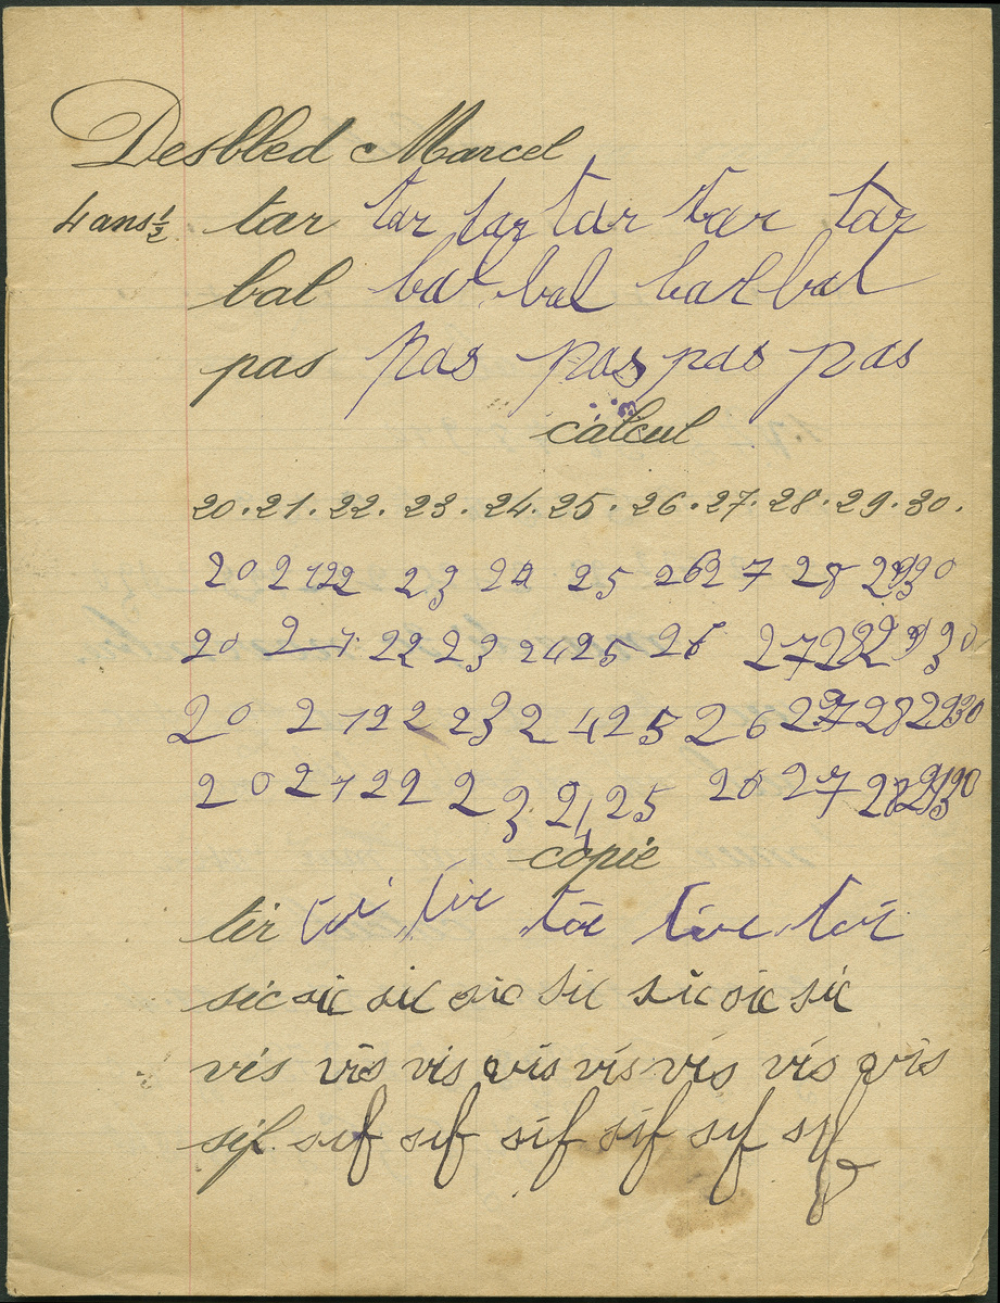 Desbled Marcel
4 ans ½ tar tar tar tar tar tar
bal bal bal bal bal
pas pas pas pas pas
calcul
20.21.22.23.24.25.26.27.28.29.30.
20 21 22 23 24 25 26 27 28 29 30
20 21 22 23 24 25 26 27 28 29 30
20 21 22 23 24 25 26 27 28 29 30
20 21 22 23 24 25 26 27 28 29 30
copie
tir tir tir tir tir tir
sic sic sic sic sic sic sic sic
vis vis vis vis vis vis vis vis
sif sif sif sif sif sif sif